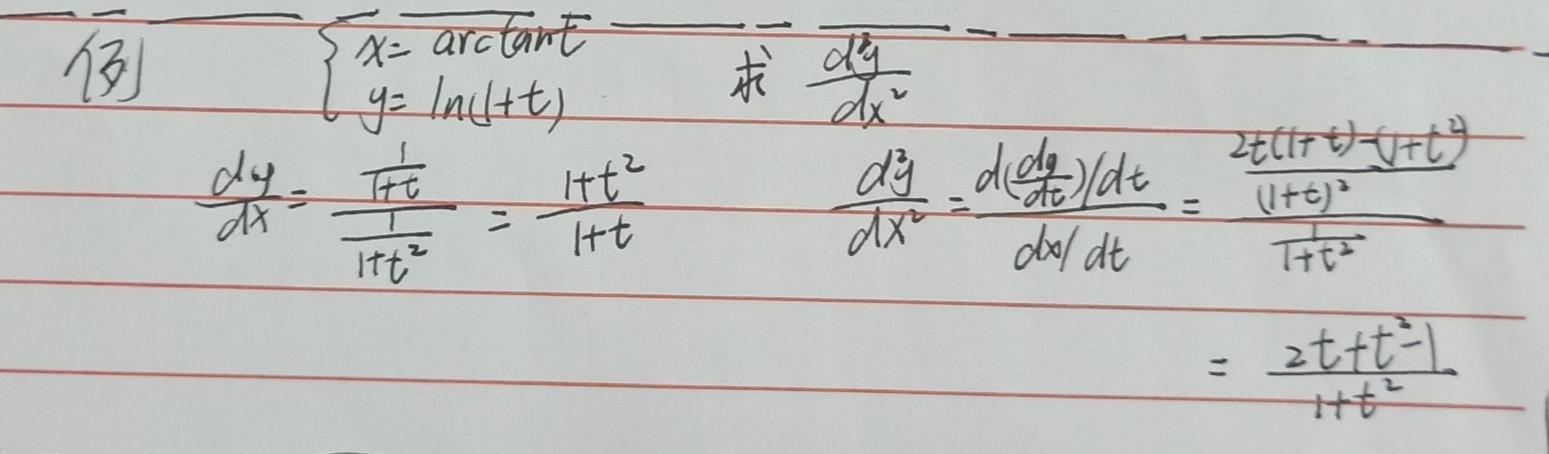 例 { x = arctant  y = ln(1+t) 求 d²y/dx²
dy/dx = (1/(1+t))/(1/(1+t²)) = (1+t²)/(1+t)  d²y/dx² = (d(dy/dt)/dt)/(dx/dt) = ((2t(1+t)-(1+t²))/(1+t)²)/(1/(1+t²))
= (2t+t²-1)/(1+t²)